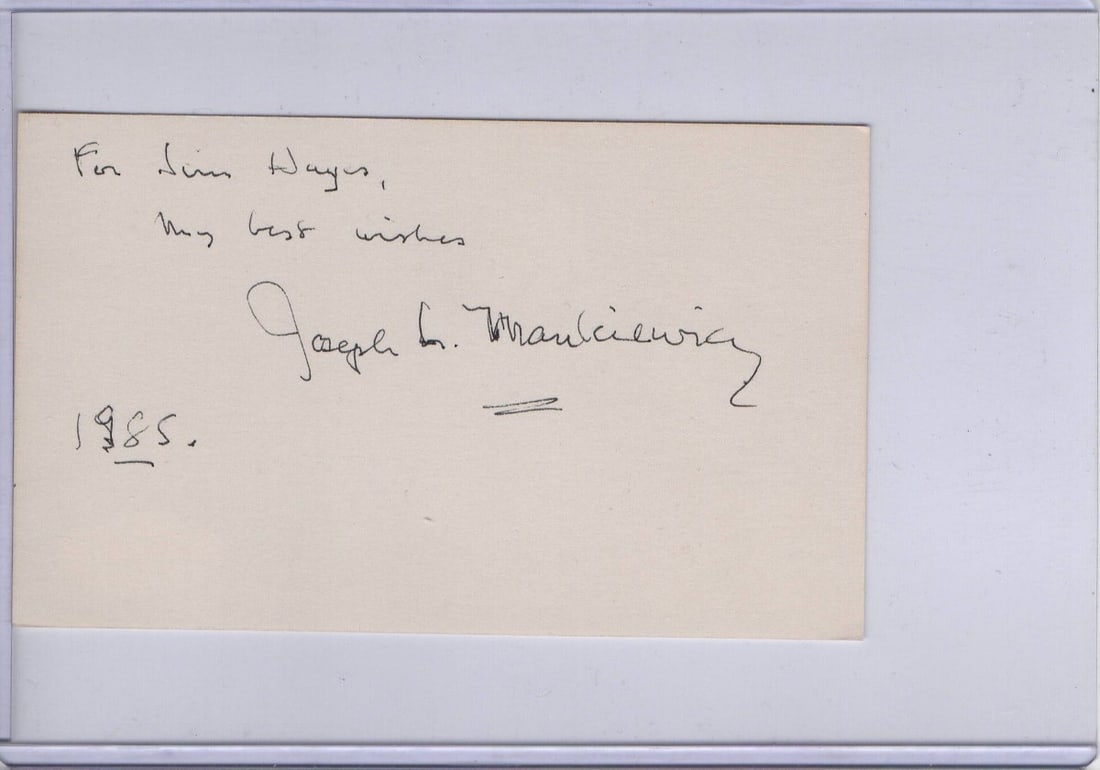 For Jim Hayes,
My best wishes
Joseph L. Mankiewicz
1985.